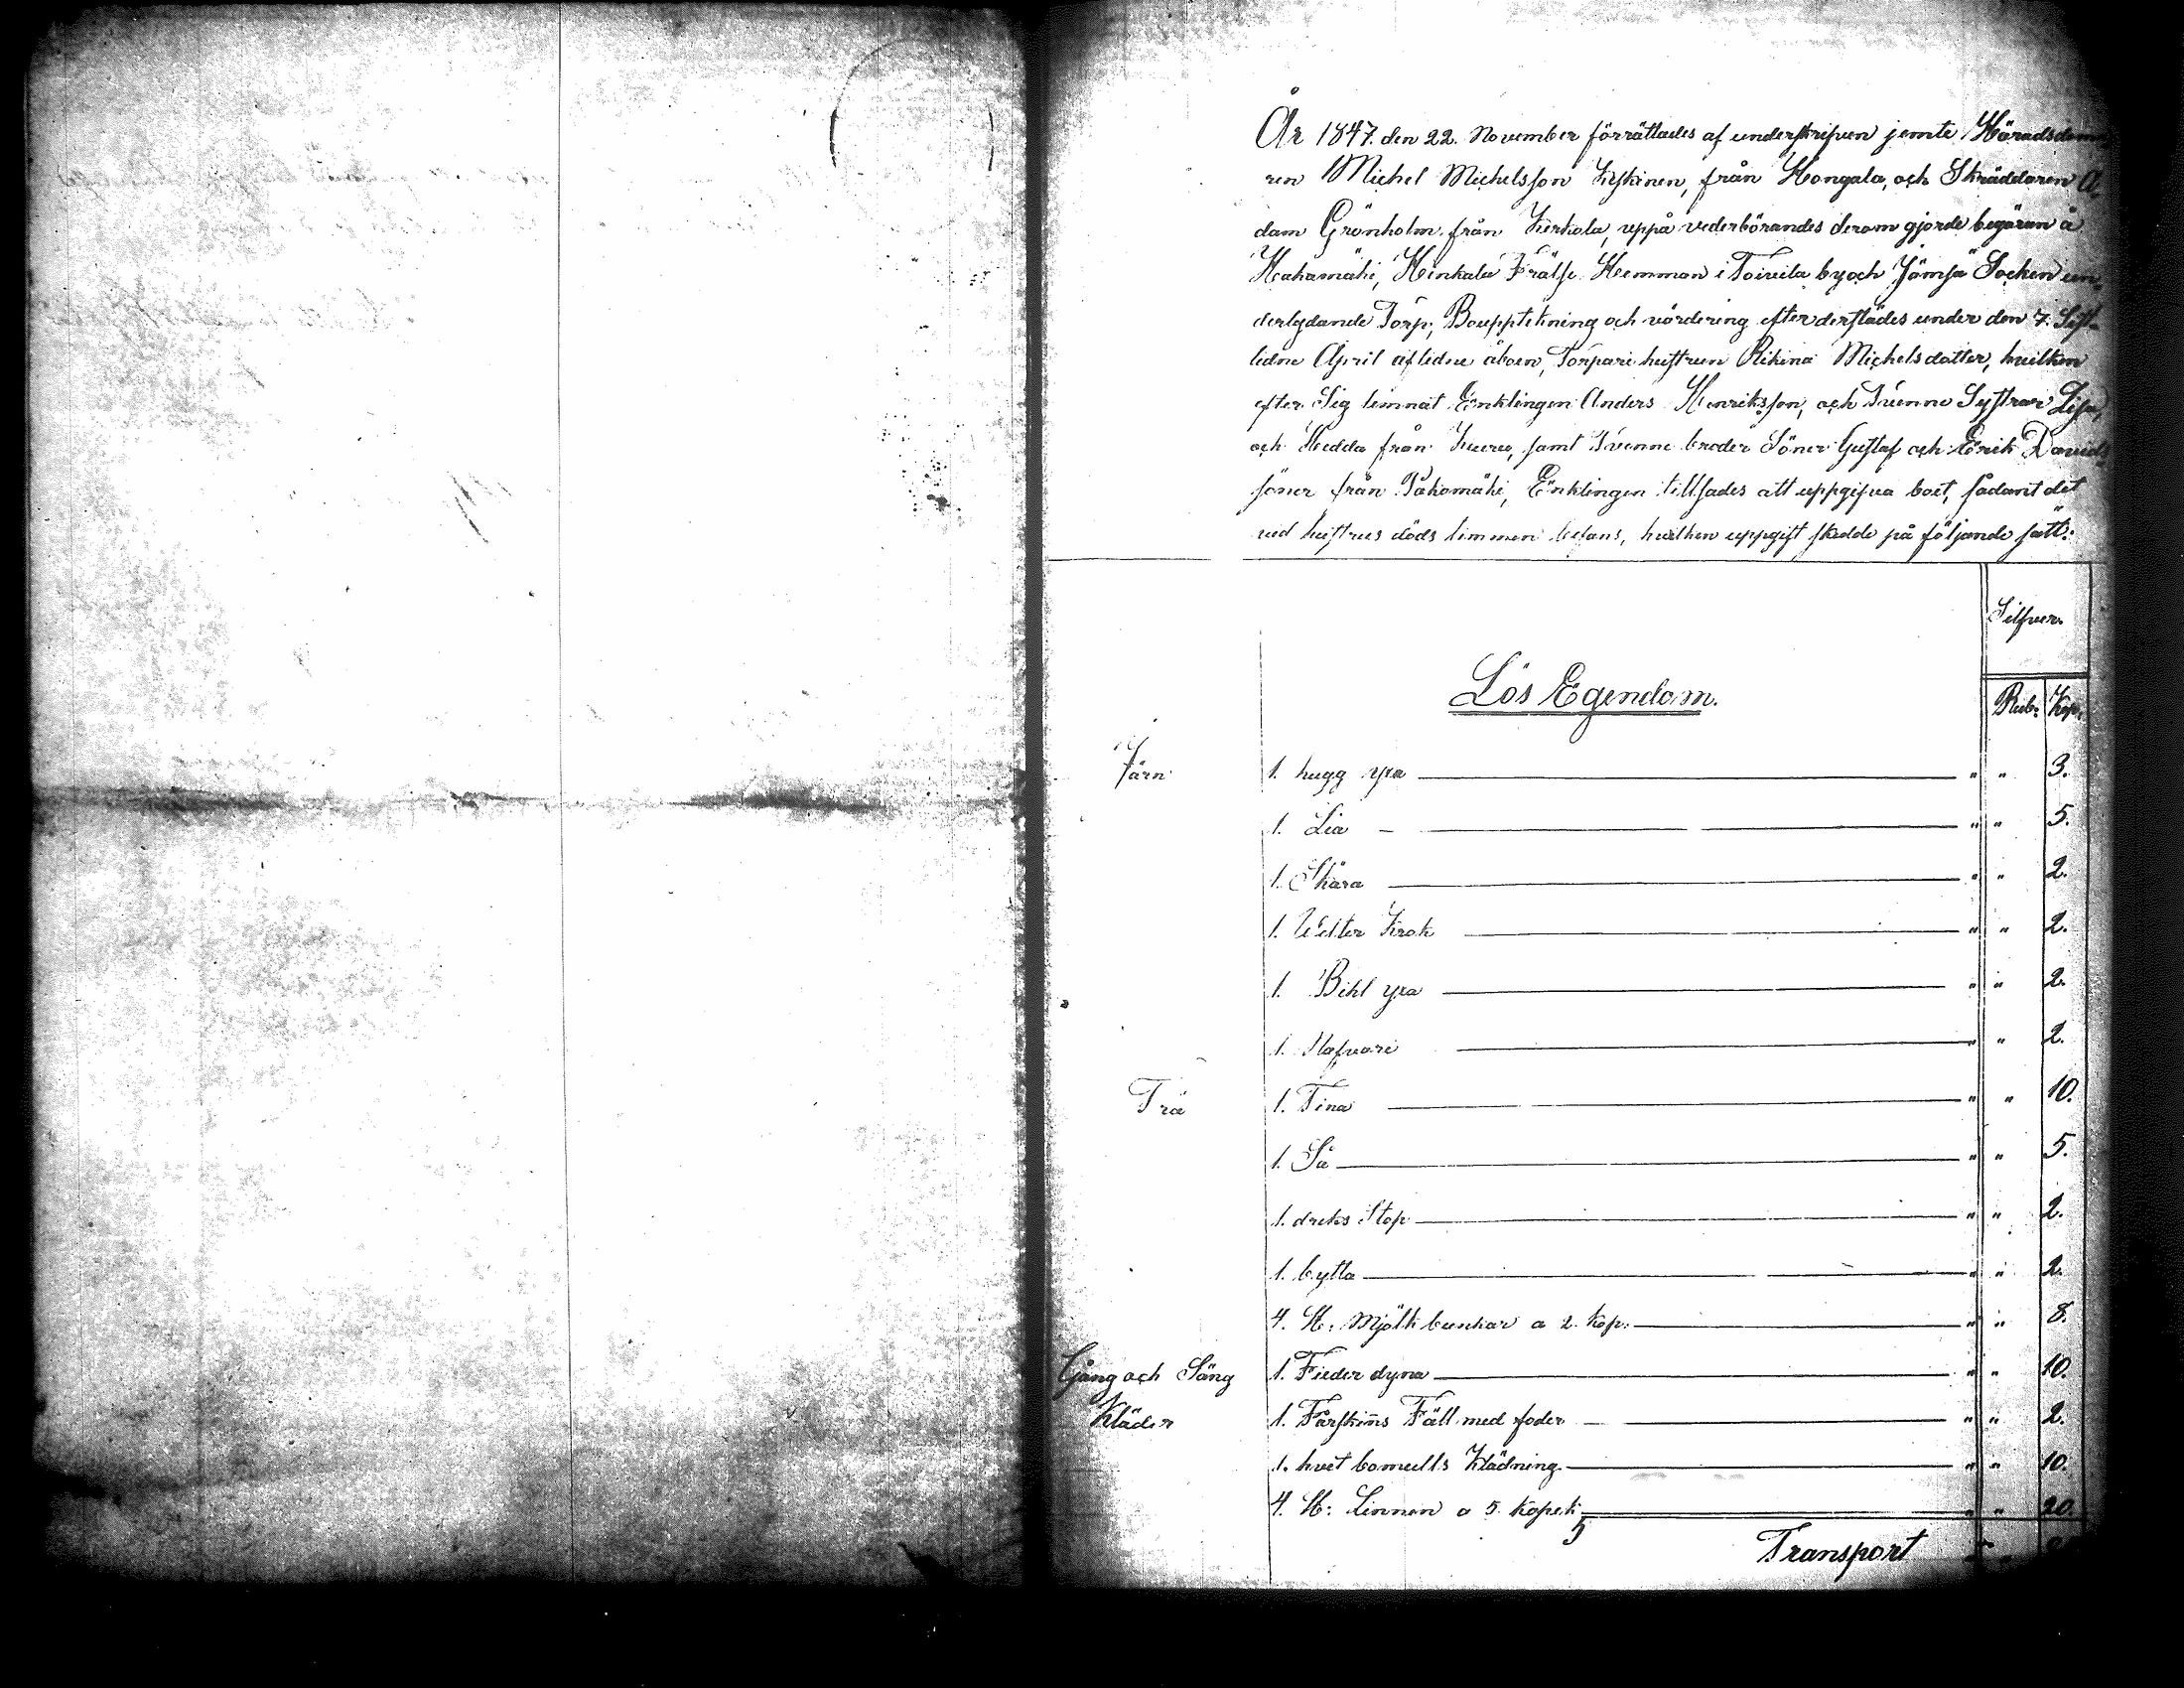 År 1847. den 22. November förrättades af underskrifven jemte Häradsdoma,
ren Michel Michelsson Kyskinen, från Hongala, och Skräddaren A,
dam Grönholm från Kerkola, uppå vederbörandes derom gjorde begäran å
Hahamäki, Hinkala Frälse Hemman i Toivila by och Jämsä Socken un,
derlydande Torp, Boupptekning och värdering efter derstädes under den 7. Sist-
lidne April aflidne åboen, Torpare hustrun Rikina Michelsdotter, hvilken
efter Sig lemnat Enklingen Anders Henriksson, och Tvenne Systrar Lisa,
och Hedda från Kuru, samt Tvenne broder Söner Gustaf och Erik Davids
söner från Påkomäki, Enklingen tillsades att uppgifva boet, sådant det
vid hustrus döds timmen befans, hvilken uppgift skedde på följande sätt:
Silfver.
Lös Egendom.
Rub: Kop.
Järn 1. hugg yxa " " 3.
1. Lia " " 5.
1. Skära " " 2.
1. Välter Krok " " 2.
1. Bihl yxa " " 2.
1. Nafvare " " 2.
Trä 1. Tina " " 10.
1. Så " " 5.
1. dricks Stop " " 2.
1. bytta " " 2.
4. St: Mjölk bunkar a 2. Kop: " " 8.
Gång och Säng 1. Fieder dyna " " 10.
Kläder 1. Fårskins Fäll med foder " " 2.
1. hvit bomulls Klädning " " 10.
4. St: Linnen a 5. Kopek " " 20.
Transport